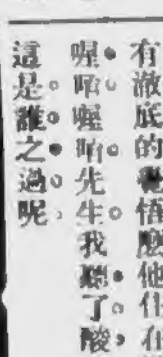 有澈底的覺悟麼他任在
喔唷喔唷先生我聽了酸
這是誰之過呢